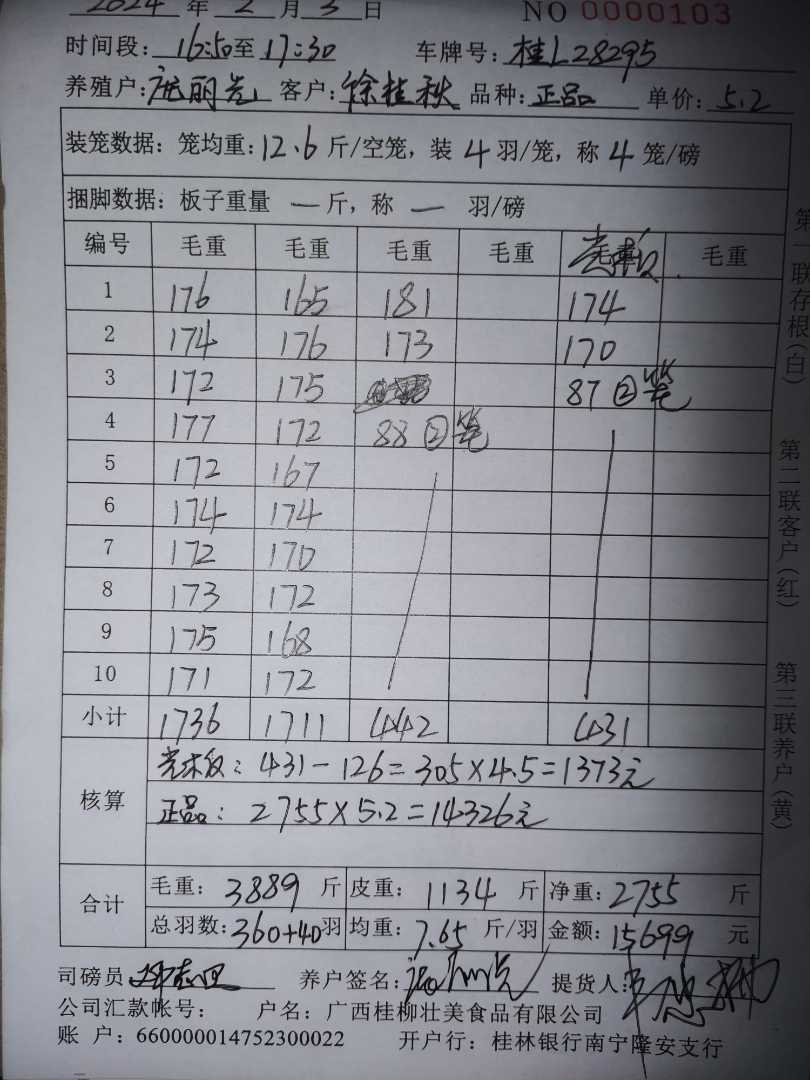 2024 年 2 月 3 日 NO 0000103
时间段: 16:50 至 17:30 车牌号: 桂L28295
养殖户: 庞丽 客户: 徐桂秋 品种: 正品 单价: 5.2
装笼数据: 笼均重: 12.6 斤/空笼, 装 4 羽/笼, 称 4 笼/磅
捆脚数据: 板子重量 一 斤, 称 一 羽/磅
编号 毛重 毛重 毛重 毛重 毛重
1 176 165 181 174
2 174 176 173 170
3 172 175 87 ②笼
4 177 172 88 ②笼
5 172 167
6 174 174
7 172 170
8 173 172
9 175 168
10 171 172
小计 1736 1711 442 431
核算
431-126=305×4.5=1373元
正品: 2755×5.2=14326元
合计
毛重: 3889 斤 皮重: 1134 斤 净重: 2755 斤
总羽数: 360+40 羽 均重: 7.65 斤/羽 金额: 15699 元
司磅员 养户签名: 提货人:
公司汇款帐号: 户名: 广西桂柳壮美食品有限公司
账 户: 660000014752300022 开户行: 桂林银行南宁隆安支行
第一联存根(白)
第二联客户(红)
第三联养户(黄)